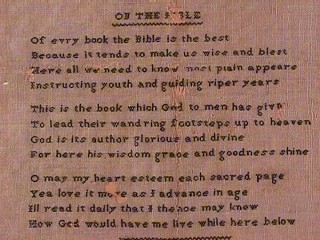 ON THE BIBLE
Of evry book the Bible is the best
Because it tends to make us wise and blest
Here all we need to know most plain appears
Instructing youth and guiding riper years
This is the book which God to men has givn
To lead their wandring footsteps up to heaven
God is its author glorious and divine
For here his wisdom grace and goodness shine
O may my heart esteem each sacred page
Yea love it more as I advance in age
Ill read it daily that I thence may know
How God would have me live while here below